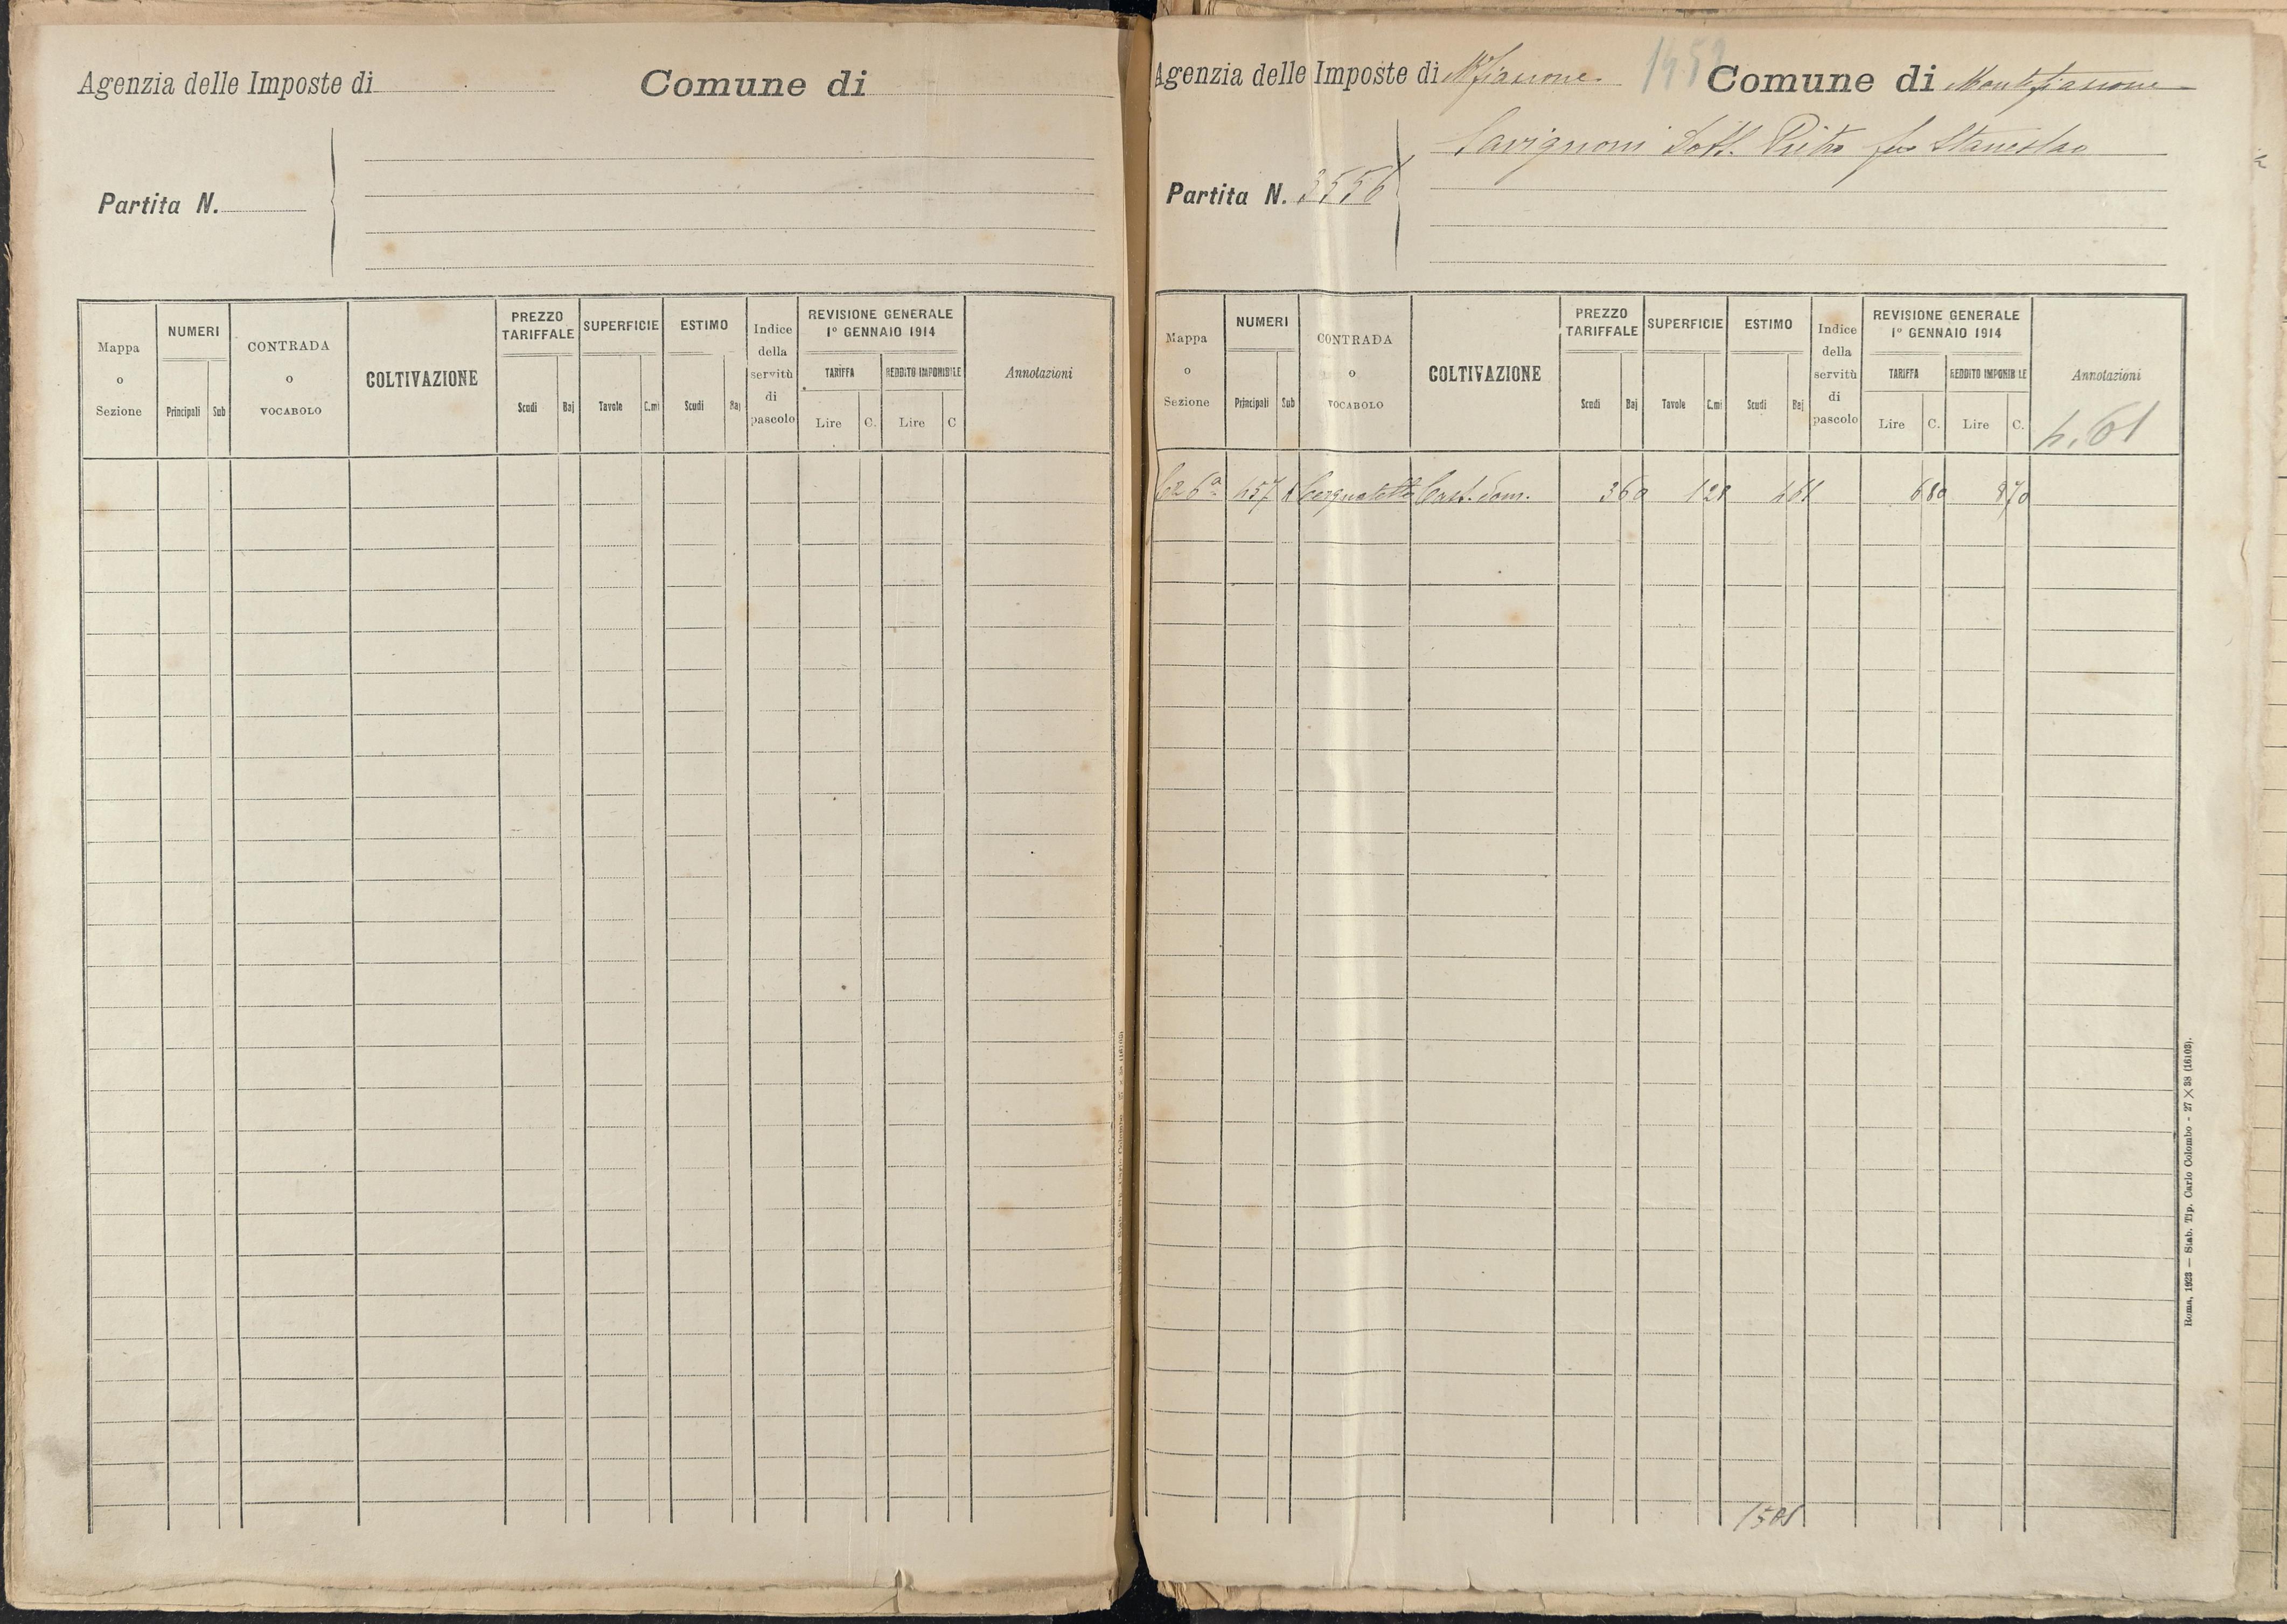 Agenzia delle Imposte di
Comune di
Partita N.
Mappa o Sezione
NUMERI
Principali
Sub
CONTRADA o VOCABOLO
COLTIVAZIONE
PREZZO TARIFFALE
Scudi
Baj
SUPERFICIE
Tavole
C.mi
ESTIMO
Scudi
Baj
Indice della servitù di pascolo
REVISIONE GENERALE
1° GENNAIO 1914
TARIFFA
REDDITO IMPONIBILE
Lire
C.
Lire
C
Annotazioni
Agenzia delle Imposte di Mfiascone
Comune di Montefiascone
Savignoni Dott. Pietro fu Stanislao
Partita N. 3556
Mappa o Sezione
NUMERI
Principali
Sub
CONTRADA o VOCABOLO
COLTIVAZIONE
PREZZO TARIFFALE
Scudi
Baj
SUPERFICIE
Tavole
C.mi
ESTIMO
Scudi
Baj
Indice della servitù di pascolo
REVISIONE GENERALE
1° GENNAIO 1914
TARIFFA
REDDITO IMPONIBILE
Lire
C.
Lire
C.
Annotazioni
6ª 457 Cast. dom. 360 128 461 680 870
Roma, 1923 — Stab. Tip. Carlo Colombo - 27 × 38 (16103).